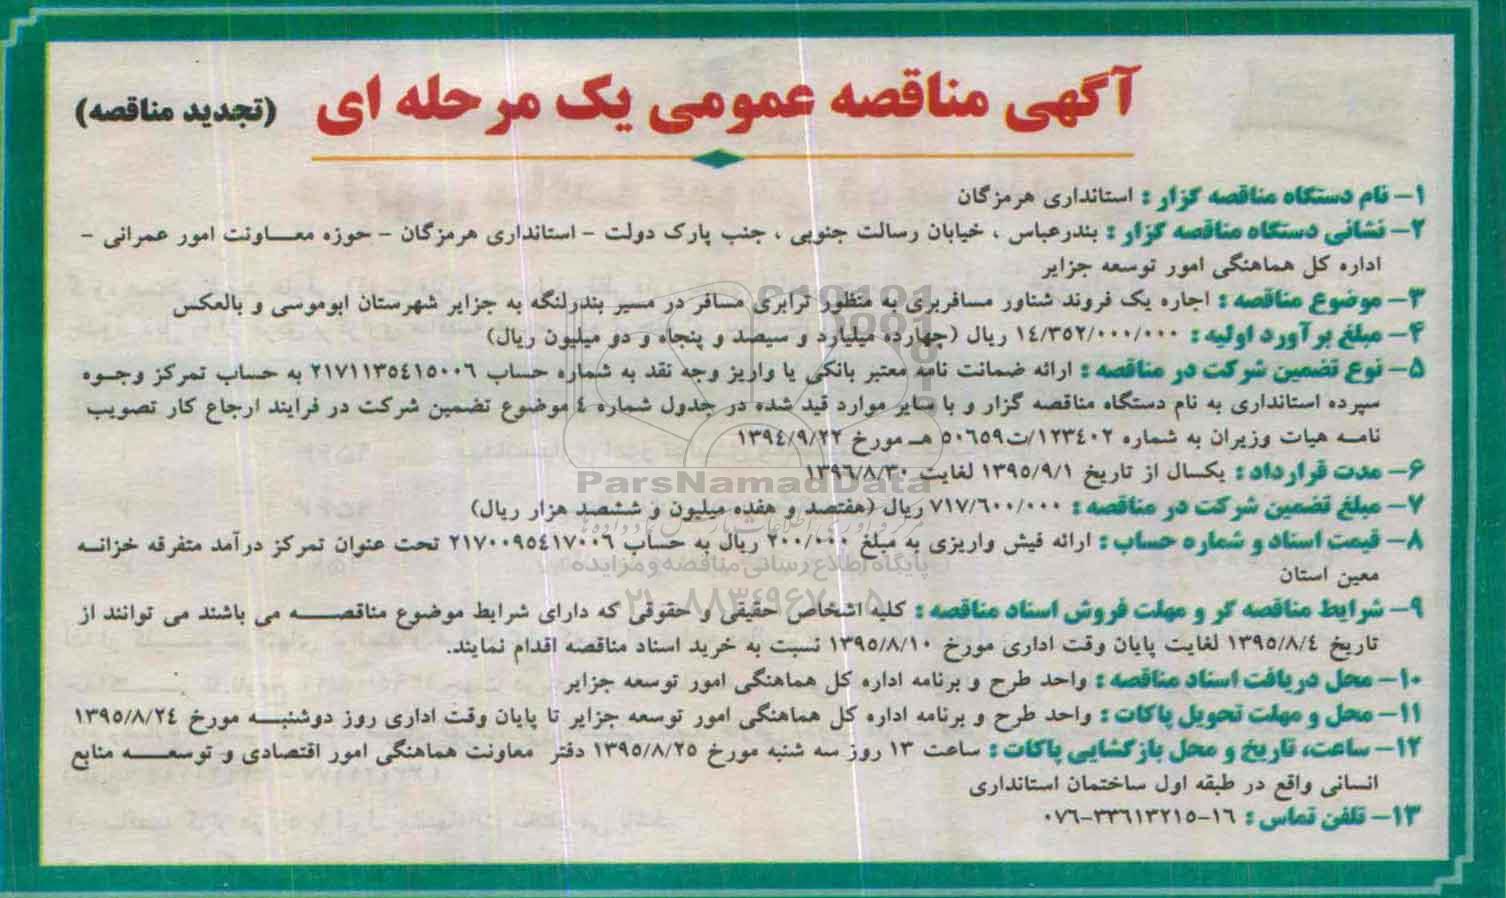 آگهی مناقصه عمومی یک مرحله ای (تجدید مناقصه)
۱- نام دستگاه مناقصه گزار : استانداری هرمزگان
۲- نشانی دستگاه مناقصه گزار : بندرعباس ، خیابان رسالت جنوبی ، جنب پارک دولت - استانداری هرمزگان - حوزه معاونت امور عمرانی -
اداره کل هماهنگی امور توسعه جزایر
۳- موضوع مناقصه : اجاره یک فروند شناور مسافربری به منظور ترابری مسافر در مسیر بندرلنگه به جزایر شهرستان ابوموسی و بالعکس
۴- مبلغ برآورد اولیه : ۱٤/۳۵۲/۰۰۰/۰۰۰ ریال (چهارده میلیارد و سیصد و پنجاه و دو میلیون ریال)
۵- نوع تضمین شرکت در مناقصه : ارائه ضمانت نامه معتبر بانکی یا واریز وجه نقد به شماره حساب ۲۱۷۱۱۳۵٤۱۵۰۰٦ به حساب تمرکز وجوه
سپرده استانداری به نام دستگاه مناقصه گزار و با سایر موارد قید شده در جدول شماره ٤ موضوع تضمین شرکت در فرایند ارجاع کار تصویب
نامه هیات وزیران به شماره ۱۲۳٤۰۲/ت۵۰٦۵۹ هـ مورخ ۱۳۹٤/۹/۲۲
۶- مدت قرارداد : یکسال از تاریخ ۱۳۹۵/۹/۱ لغایت ۱۳۹٦/۸/۳۰
۷- مبلغ تضمین شرکت در مناقصه : ۷۱۷/٦۰۰/۰۰۰ ریال (هفتصد و هفده میلیون و ششصد هزار ریال)
۸- قیمت اسناد و شماره حساب : ارائه فیش واریزی به مبلغ ۲۰۰/۰۰۰ ریال به حساب ۲۱۷۰۰۹۵٤۱۷۰۰٦ تحت عنوان تمرکز درآمد متفرقه خزانه
معین استان
۹- شرایط مناقصه گر و مهلت فروش اسناد مناقصه : کلیه اشخاص حقیقی و حقوقی که دارای شرایط موضوع مناقصه می باشند می توانند از
تاریخ ۱۳۹۵/۸/٤ لغایت پایان وقت اداری مورخ ۱۳۹۵/۸/۱۰ نسبت به خرید اسناد مناقصه اقدام نمایند.
۱۰- محل دریافت اسناد مناقصه : واحد طرح و برنامه اداره کل هماهنگی امور توسعه جزایر
۱۱- محل و مهلت تحویل پاکات : واحد طرح و برنامه اداره کل هماهنگی امور توسعه جزایر تا پایان وقت اداری روز دوشنبه مورخ ۱۳۹۵/۸/۲٤
۱۲- ساعت، تاریخ و محل بازگشایی پاکات : ساعت ۱۳ روز سه شنبه مورخ ۱۳۹۵/۸/۲۵ دفتر معاونت هماهنگی امور اقتصادی و توسعه منابع
انسانی واقع در طبقه اول ساختمان استانداری
۱۳- تلفن تماس : ۱٦-۳۳٦۱۳۲۱۵-۰۷٦
ParsNamadData
پایگاه اطلاع رسانی مناقصه و مزایده